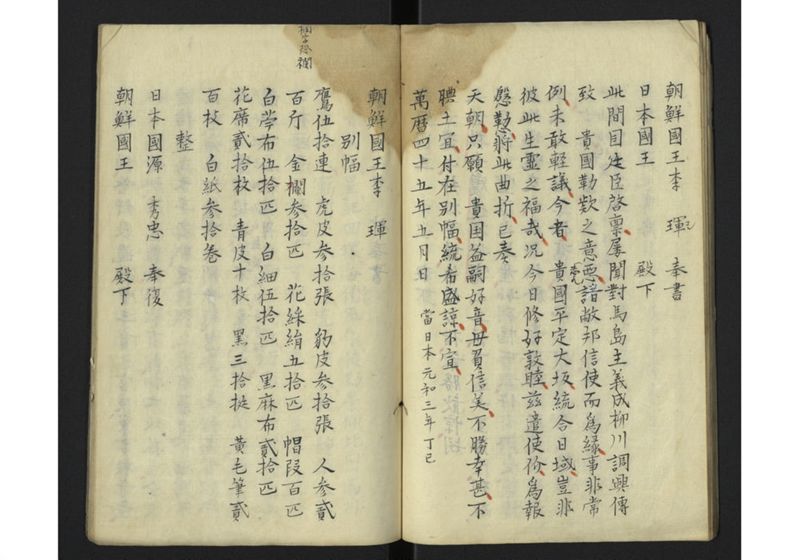 朝鮮國王李 琿 奉書
日本國王 殿下
此間因邊臣啓稟屢聞對馬島主義成柳川調興傳
致 貴國勤欵之意要諳敝邦信使而爲緣事非常
例未敢輕議今者 貴國平定大坂統合日域豈非
彼此生靈之福哉況今日修好敦睦玆遣使价爲報
慇懃將此曲折已奏
天朝只願 貴国益嗣好音毋負信美不勝幸甚不
腆土宜付在別幅統希盛諒不宣
萬曆四十五年五月日 當日本元和三年丁巳
朝鮮國王李 琿
別幅
鷹伍拾連 虎皮參拾張 豹皮參拾張 人參貳
百斤 金襴參拾匹 花綵絹五拾匹 帽段百匹
白苧布伍拾匹 白細伍拾匹 黒麻布貳拾匹
花席貳拾枚 青皮十枚 墨三拾挺 黄毛筆貳
百枚 白紙參拾卷
整
日本國源 秀忠 奉復
朝鮮國王 殿下